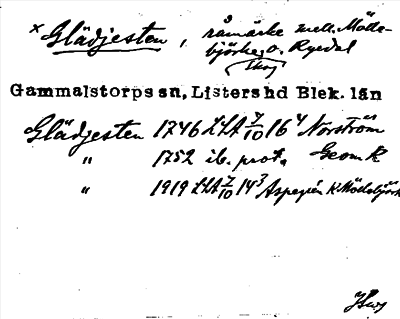 × Glädjesten, råmärke mell. Mölle-
björke o. Ryedal
Skog
Gammalstorps sn, Listers hd Blek. län
Glädjesten 1746 LSA 7/10 16⁴ Norström
" 1752 ib. prot. Geom R
" 1919 LSA 7/10 14³ Aspegrén K Möllebjörk